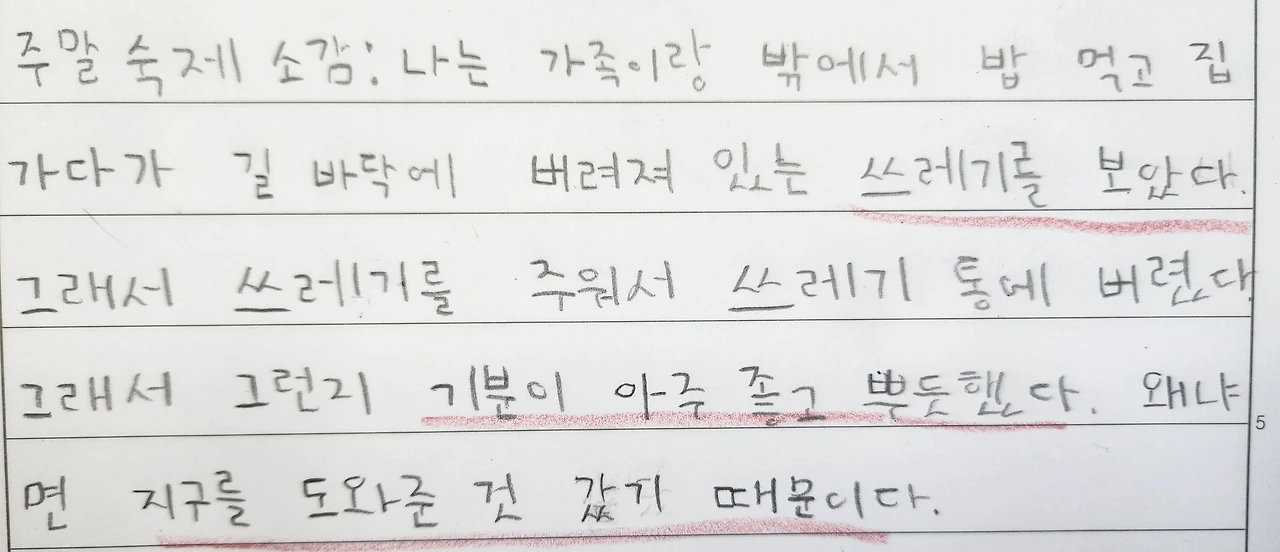 주말 숙제 소감: 나는 가족이랑 밖에서 밥 먹고 집
가다가 길 바닥에 버려져 있는 쓰레기를 보았다.
그래서 쓰레기를 주워서 쓰레기 통에 버렸다
그래서 그런지 기분이 아주 좋고 뿌듯했다. 왜냐
면 지구를 도와준 것 같기 때문이다.
5